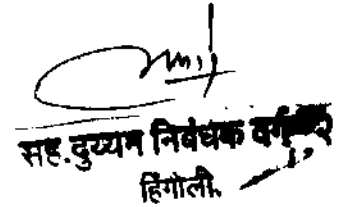 सह.दुय्यम निबंधक वर्ग
हिंगोली.